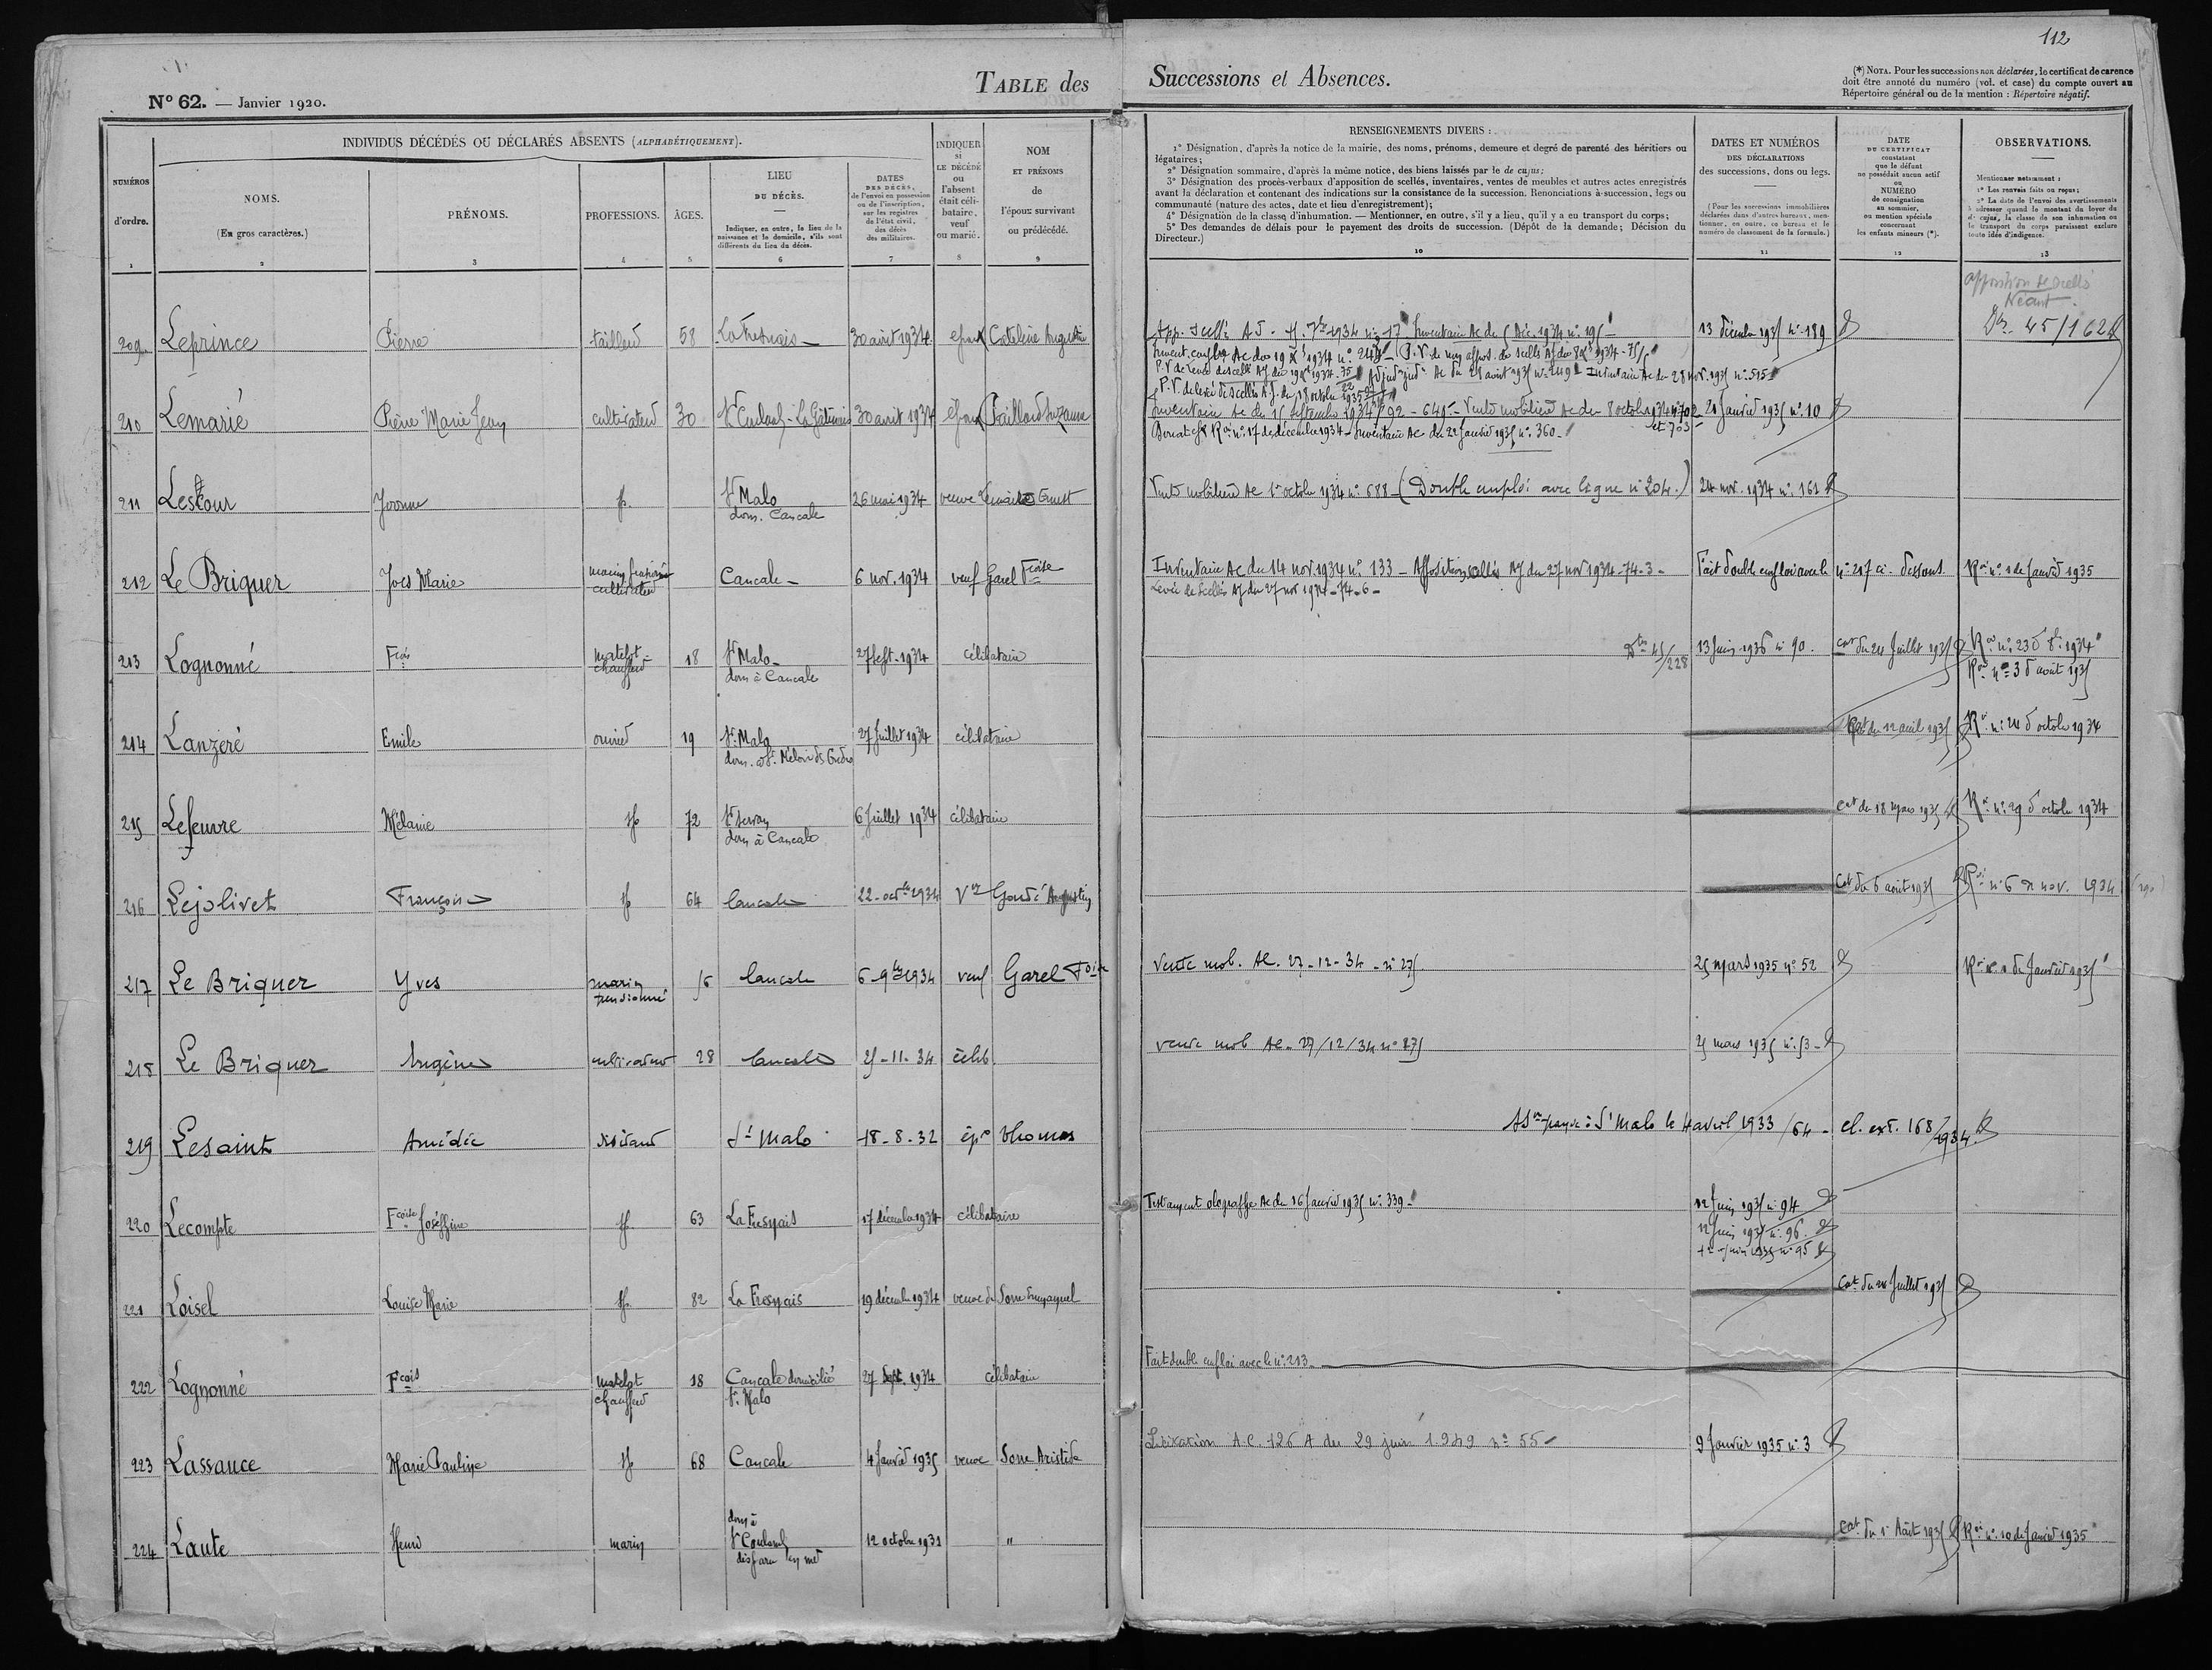 112
TABLE des Successions et Absences.
N° 62. — Janvier 1920.
(*) NOTA. Pour les successions non déclarées, le certificat de carence
doit être annoté du numéro (vol. et case) du compte ouvert au
Répertoire général ou de la mention : Répertoire négatif.
NUMÉROS
d'ordre.
1
INDIVIDUS DÉCÉDÉS OU DÉCLARÉS ABSENTS (ALPHABÉTIQUEMENT).
NOMS.
(En gros caractères.)
2
PRÉNOMS.
3
PROFESSIONS.
4
ÂGES.
5
LIEU
DU DÉCÈS.
Indiquer, en outre, le lieu de la
naissance et le domicile, s'ils sont
différents du lieu du décès.
6
DATES
DES DÉCÈS,
de l'envoi en possession
ou de l'inscription,
sur les registres
de l'état civil,
des décès
des militaires.
7
INDIQUER
si
LE DÉCÉDÉ
ou
l'absent
était céli-
bataire,
veuf
ou marié.
8
NOM
ET PRÉNOMS
de
l'époux survivant
ou prédécédé.
9
RENSEIGNEMENTS DIVERS :
1° Désignation, d'après la notice de la mairie, des noms, prénoms, demeure et degré de parenté des héritiers ou
légataires;
2° Désignation sommaire, d'après la même notice, des biens laissés par le de cujus;
3° Désignation des procès-verbaux d'apposition de scellés, inventaires, ventes de meubles et autres actes enregistrés
avant la déclaration et contenant des indications sur la consistance de la succession. Renonciations à succession, legs ou
communauté (nature des actes, date et lieu d'enregistrement);
4° Désignation de la classe d'inhumation. — Mentionner, en outre, s'il y a lieu, qu'il y a eu transport du corps;
5° Des demandes de délais pour le payement des droits de succession. (Dépôt de la demande; Décision du
Directeur.)
10
DATES ET NUMÉROS
DES DÉCLARATIONS
des successions, dons ou legs.
(Pour les successions immobilières
déclarées dans d'autres bureaux, men-
tionner, en outre, ce bureau et le
numéro de classement de la formule.)
11
DATE
DU CERTIFICAT
constatant
que le défunt
ne possédait aucun actif
ou
NUMÉRO
de consignation
au sommier,
ou mention spéciale
concernant
les enfants mineurs (*).
12
OBSERVATIONS.
Mentionner notamment :
1° Les renvois faits ou reçus;
2° La date de l'envoi des avertissements
à adresser quand le montant du loyer du
de cujus, la classe de son inhumation ou
le transport du corps paraissent exclure
toute idée d'indigence.
13
apposition de scellés
Néant.
209 Leprince Pierre tailleur 58 La Fresnais 30 avril 1934 époux 13 décembre 1935 n° 189 45/162
210 Lemarié Pierre Marie Jean cultivateur 30 St Coulomb 30 avril 1934 époux Suzanne
Inventaire Ac du 15 septembre 1934 - Vente mobilière Ac du 8 octobre 1934 n° 702 et 703 21 Janvier 1935 n° 10
Inventaire Ac du 22 Janvier 1935 n° 360
211 Lescour Yvonne sp. St Malo dom. Cancale 26 mai 1934 veuve Ernest Vente mobilière Ac 1er octobre 1934 n° 688 (Double emploi avec ligne n° 204.) 24 nov. 1934 n° 161
212 Le Briquer Yves Marie marin pensionné cultivateur Cancale 6 nov. 1934 veuf Garel Fcoise Inventaire Ac du 14 nov. 1934 n° 133 - Apposition scellés AJ du 27 nov 1934-74-3 - Fait double emploi avec le n° 217 ci-dessous Roi n° 1 de Janvier 1935
Levée de Scellés AJ du 27 nov 1934-74-6 -
213 Lognonné Fcois matelot chauffeur 18 St Malo dom à Cancale 27 sept. 1934 célibataire 45/228 13 Juin 1936 n° 90 Cat du 24 Juillet 1935
Roi n° 3 d'août 1935
214 Lanzeré Emile ouvrier 19 St Malo dom. à St Méloir des Ondes 27 Juillet 1934 célibataire Cat du 12 avril 1935 Roi n° 24 d'octobre 1934
215 Lefeuvre Mélanie sp 72 St Servan dom à Cancale 6 Juillet 1934 célibataire Cat du 18 mars 1935 Roi n° 29 d'octobre 1934
216 Lejolivet Françoise sp 64 Cancale 22 octbre 1934 Vve Augustin Cat du 6 août 1935 Roi n° 6 nov. 1934
217 Le Briquer Yves marin pensionné Cancale 6-9bre 1934 veuf Garel Foise Vente mob. AC. 27-12-34 - n° 275 25 mars 1935 n° 52 Roi n° 1 de Janvier 1935
218 Le Briquer Eugène cultivateur 28 Cancale 25-11-34 célib. Vente mob AC. 27/12/34 n° 275 25 mars 1935 n° 53
219 Lesaint Amédée St Malo 18-8-32 Thomas payée à St Malo le 4 avril 1933 /64 - cl. ext. 168/1934
220 Lecompte Fcoise Joséphine sp. 63 La Fresnais 17 décembre 1934 célibataire Testament olographe Ac du 16 Janvier 1935 n° 339 12 Juin 1935 n° 94
12 Juin 1935 n° 96
12 Juin 1935 n° 95
221 Loisel Louise Marie sp. 82 La Fresnais 19 décembre 1934 veuve de Sorre Emmanuel Cat du 24 Juillet 1935
222 Lognonné Fcois matelot chauffeur 18 Cancale domicilié St Malo 27 Sept. 1934 célibataire Fait double emploi avec le n° 213
223 Lassance Marie Pauline sp 68 Cancale 4 Janvier 1935 veuve Sorre Aristide Licitation A.C. 126 A du 29 juin 1949 n° 55 9 Janvier 1935 n° 3
224 Laute Henri marin dom à St Coulomb disparu en mer 12 octobre 1932 " Cat du 1er Août 1935 Roi n° 10 de Janvier 1935